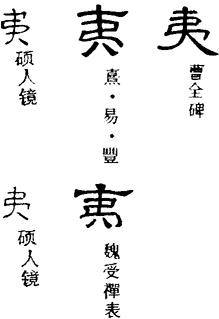 夷
硕人镜
夷
熹·易·豐
夷
曹全碑
夷
硕人镜
夷
魏受禪表